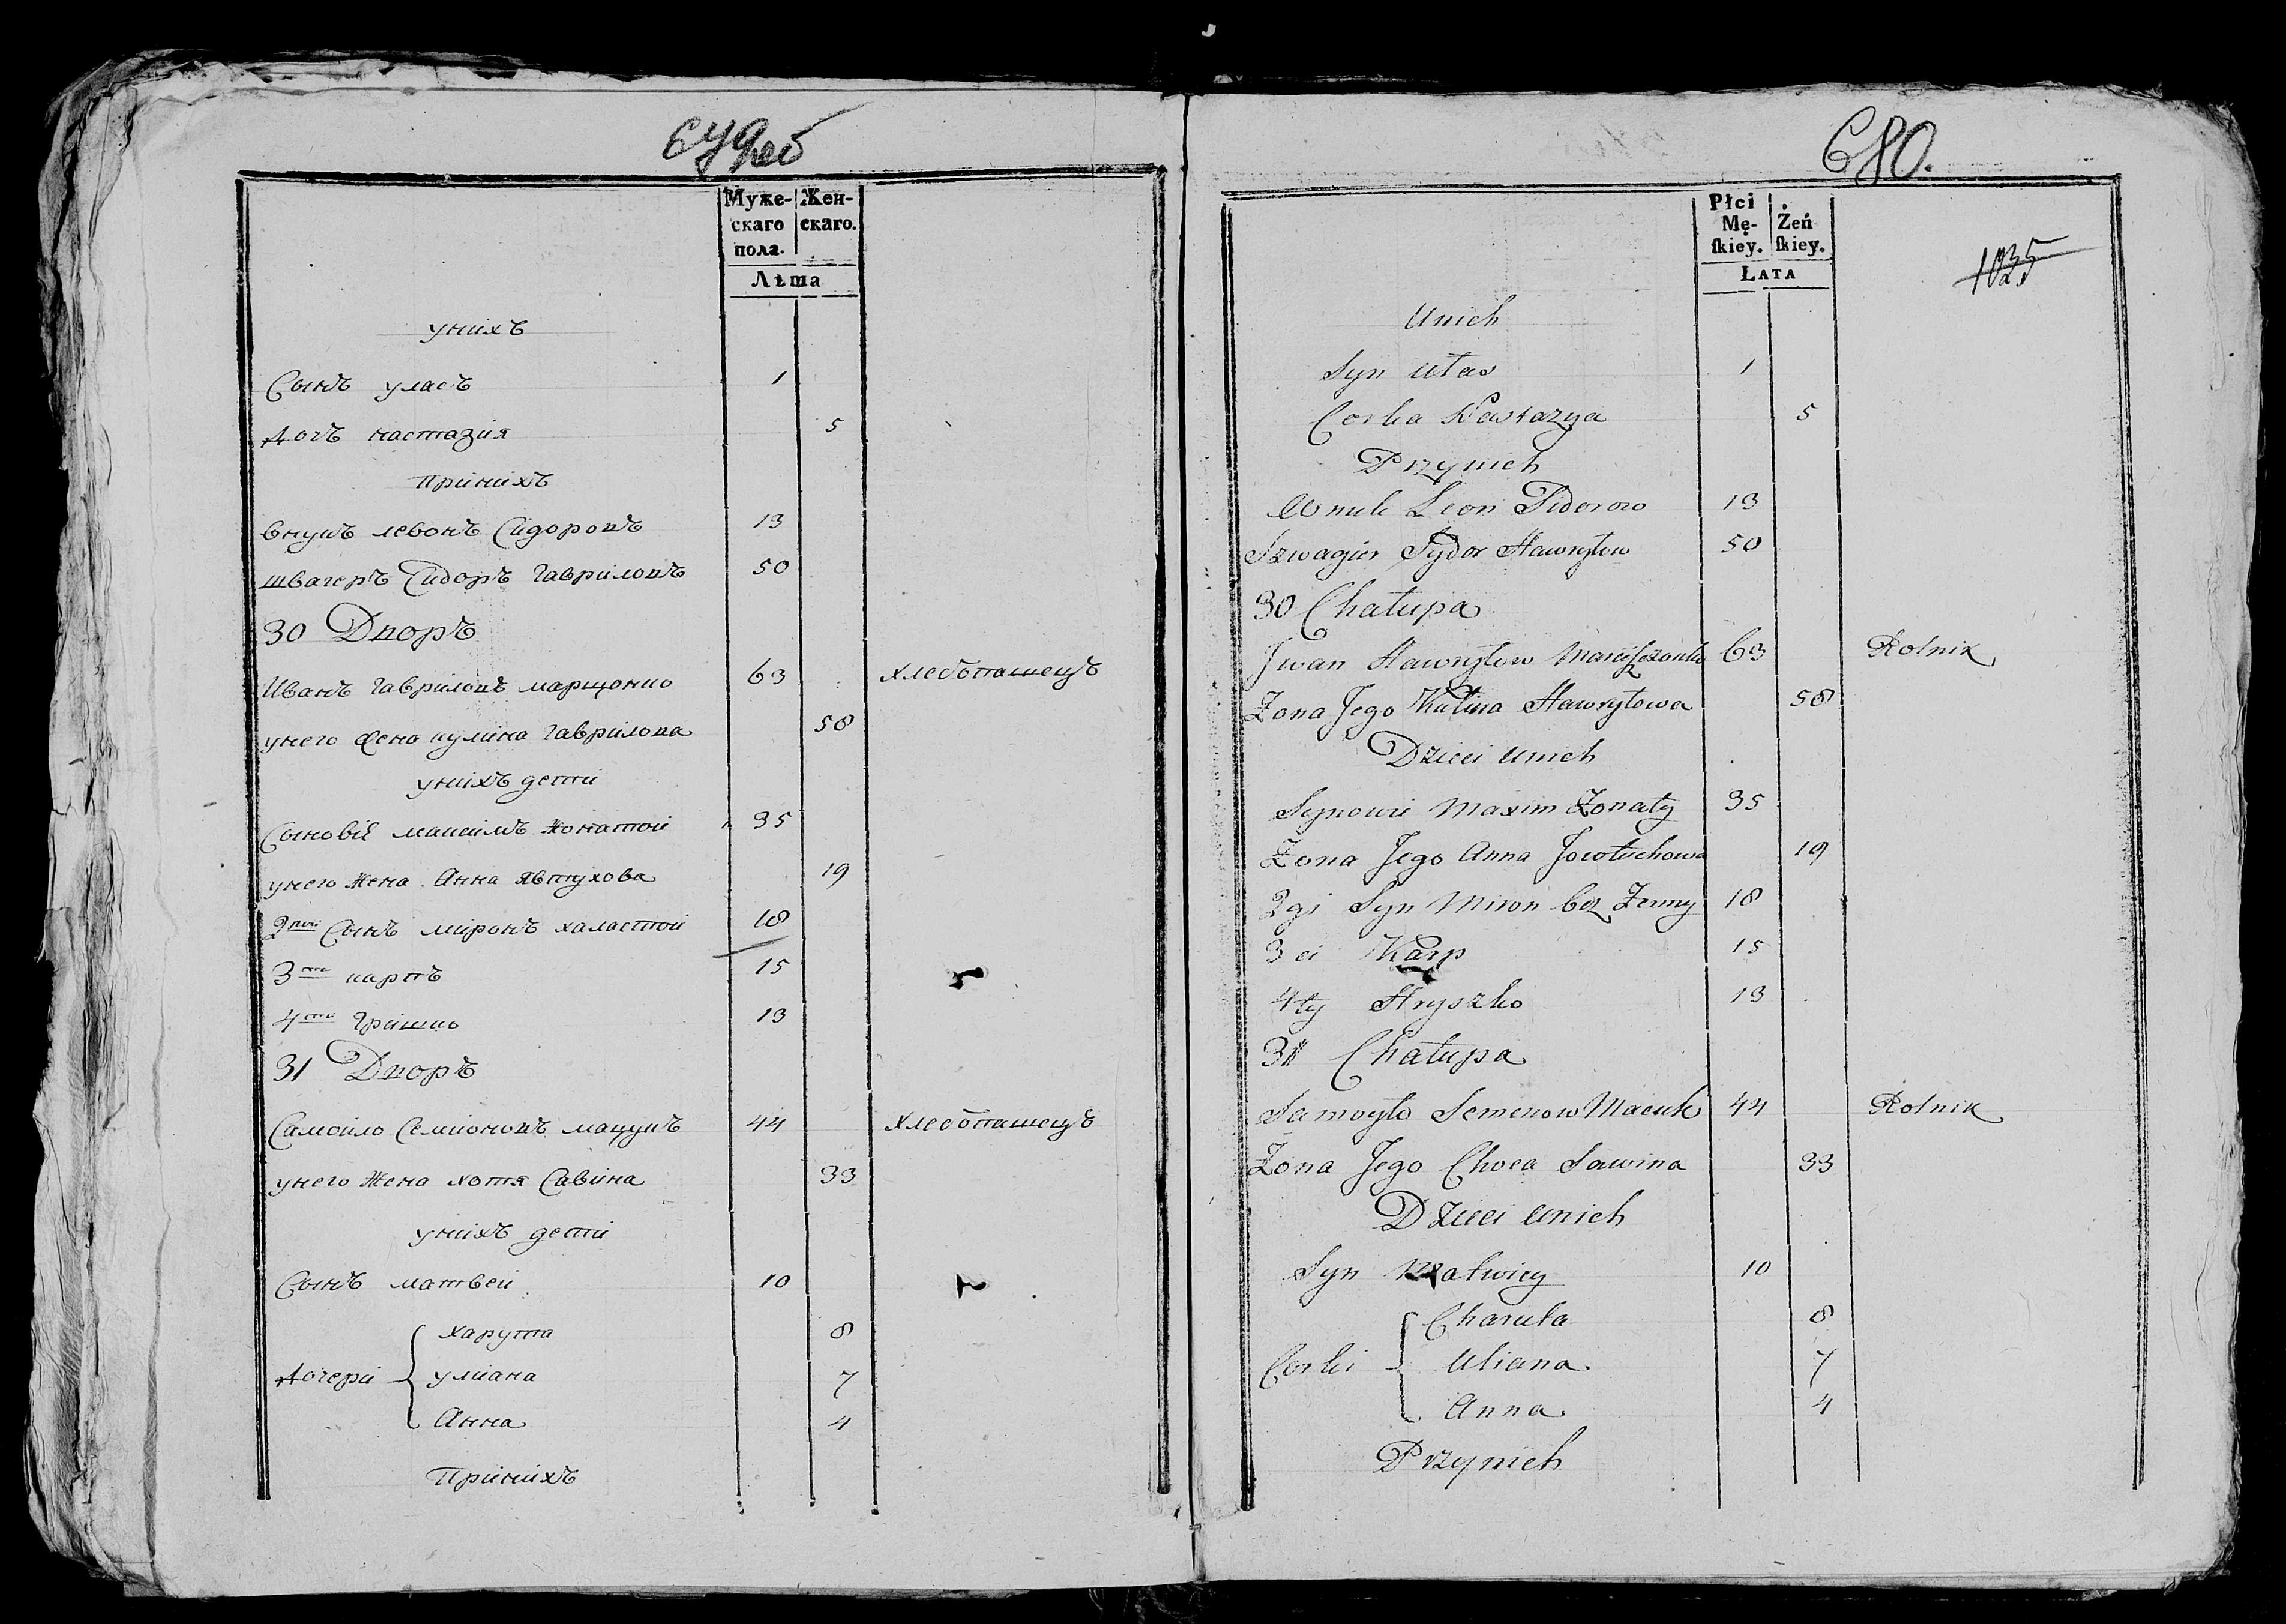 679 об
Муже-скаго пола. Жен-скаго.
Лѣта
унихъ
Сынъ уласъ 1
Дочъ настазия 5
принихъ
внукъ левонъ Сидоровъ 13
швагеръ Сидоръ Гавриловъ 50
30 Дворъ
Иванъ Гавриловъ марщонко 63 хлебопашецъ
унего жена кулина Гаврилова 58
унихъ дети
Сыновiя максимъ жонатой 35
унего жена Анна Явтухова 19
2рой Сынъ миронъ халастой 18
3тiи карпъ 15
4тiи Гришко 13
31 Дворъ
Самойло Семионовъ мацукъ 44 хлебопашецъ
унего жена хотя Савина 33
унихъ дети
Сынъ матвей 10
Дочери { харута 8
улиана 7
Анна 4
принихъ
680.
1035
Płci Mę-skiey. Żeń skiey.
LATA
Unich
Syn Ułas 1
Corka Nastazya 5
Przynich
Wnuk Leon Sidorow 13
Szwagier Sydor Hawryłow 50
30 Chałupa
Jwan Hawryłow Maryszczonko 63 Rolnik
Zona Jego Kulina Hawryłowa 58
Dzieci Unich
Synowie Maxim Zonaty 35
Zona Jego Anna Jowtuchowa 19
2gi Syn Miron bez Zenny 18
3ci Karp 15
4ty Hryszko 13
31 Chałupa
Samoyło Semenow Macuk 44 Rolnik
Zona Jego Choca Sawina 33
Dzieci Unich
Syn Matwiey 10
Corki { Charuta 8
Uliana 7
Anna 4
Przynich